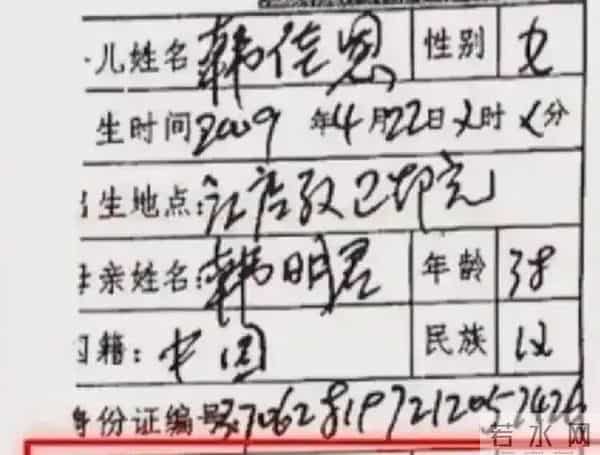 儿姓名 韩佳恩 性别 女
生时间 2009 年 4 月 22 日 时 分
生地点:
亲姓名: 韩明君 年龄
籍: 中国 民族 汉
身份证编号: 370628197212057426
若水网